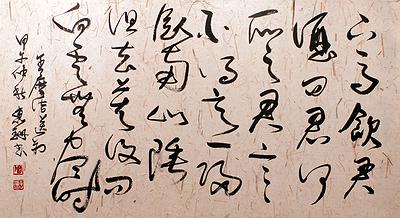 下馬飲君
酒問君何
所之君言
不得意歸
臥南山陲
但去莫復問
白雲無盡時
王摩詰送別
甲午仲秋